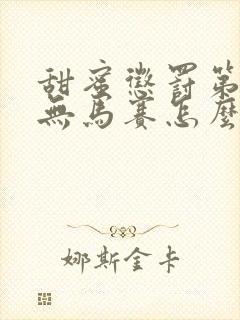 甜蜜懲罰第
無馬賽怎麼
娜斯金卡